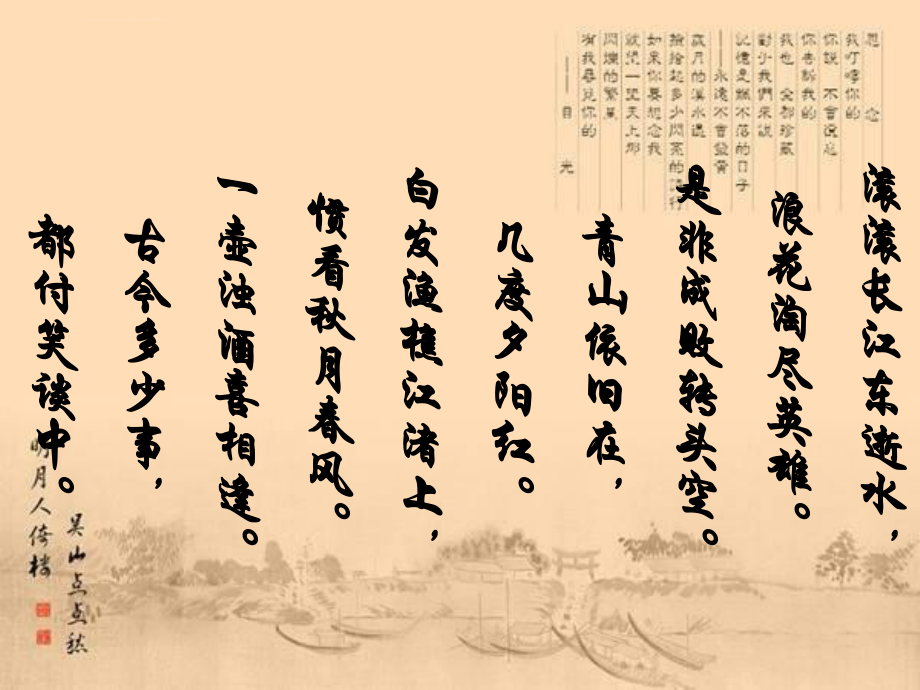 思 念
我叮嚀你的
你說 不會遺忘
你告訴我的
我也 全都珍藏
對于我們來說
記憶是飄不落的日子
——永遠不會發黃
歲月的溪水邊
撿拾起多少閃亮的詩行
如果你要想念我
就望一望天上那
閃爍的繁星
有我尋覓你的
——目 光
滚滚长江东逝水，
浪花淘尽英雄。
是非成败转头空。
青山依旧在，
几度夕阳红。
白发渔樵江渚上，
惯看秋月春风。
一壶浊酒喜相逢。
古今多少事，
都付笑谈中。
吴山点点愁
明月人倚楼